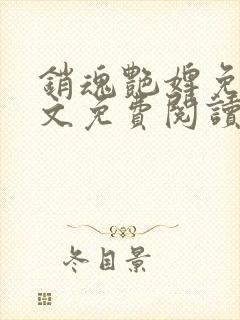 銷魂艷婢免
文免費閱讀
冬目景